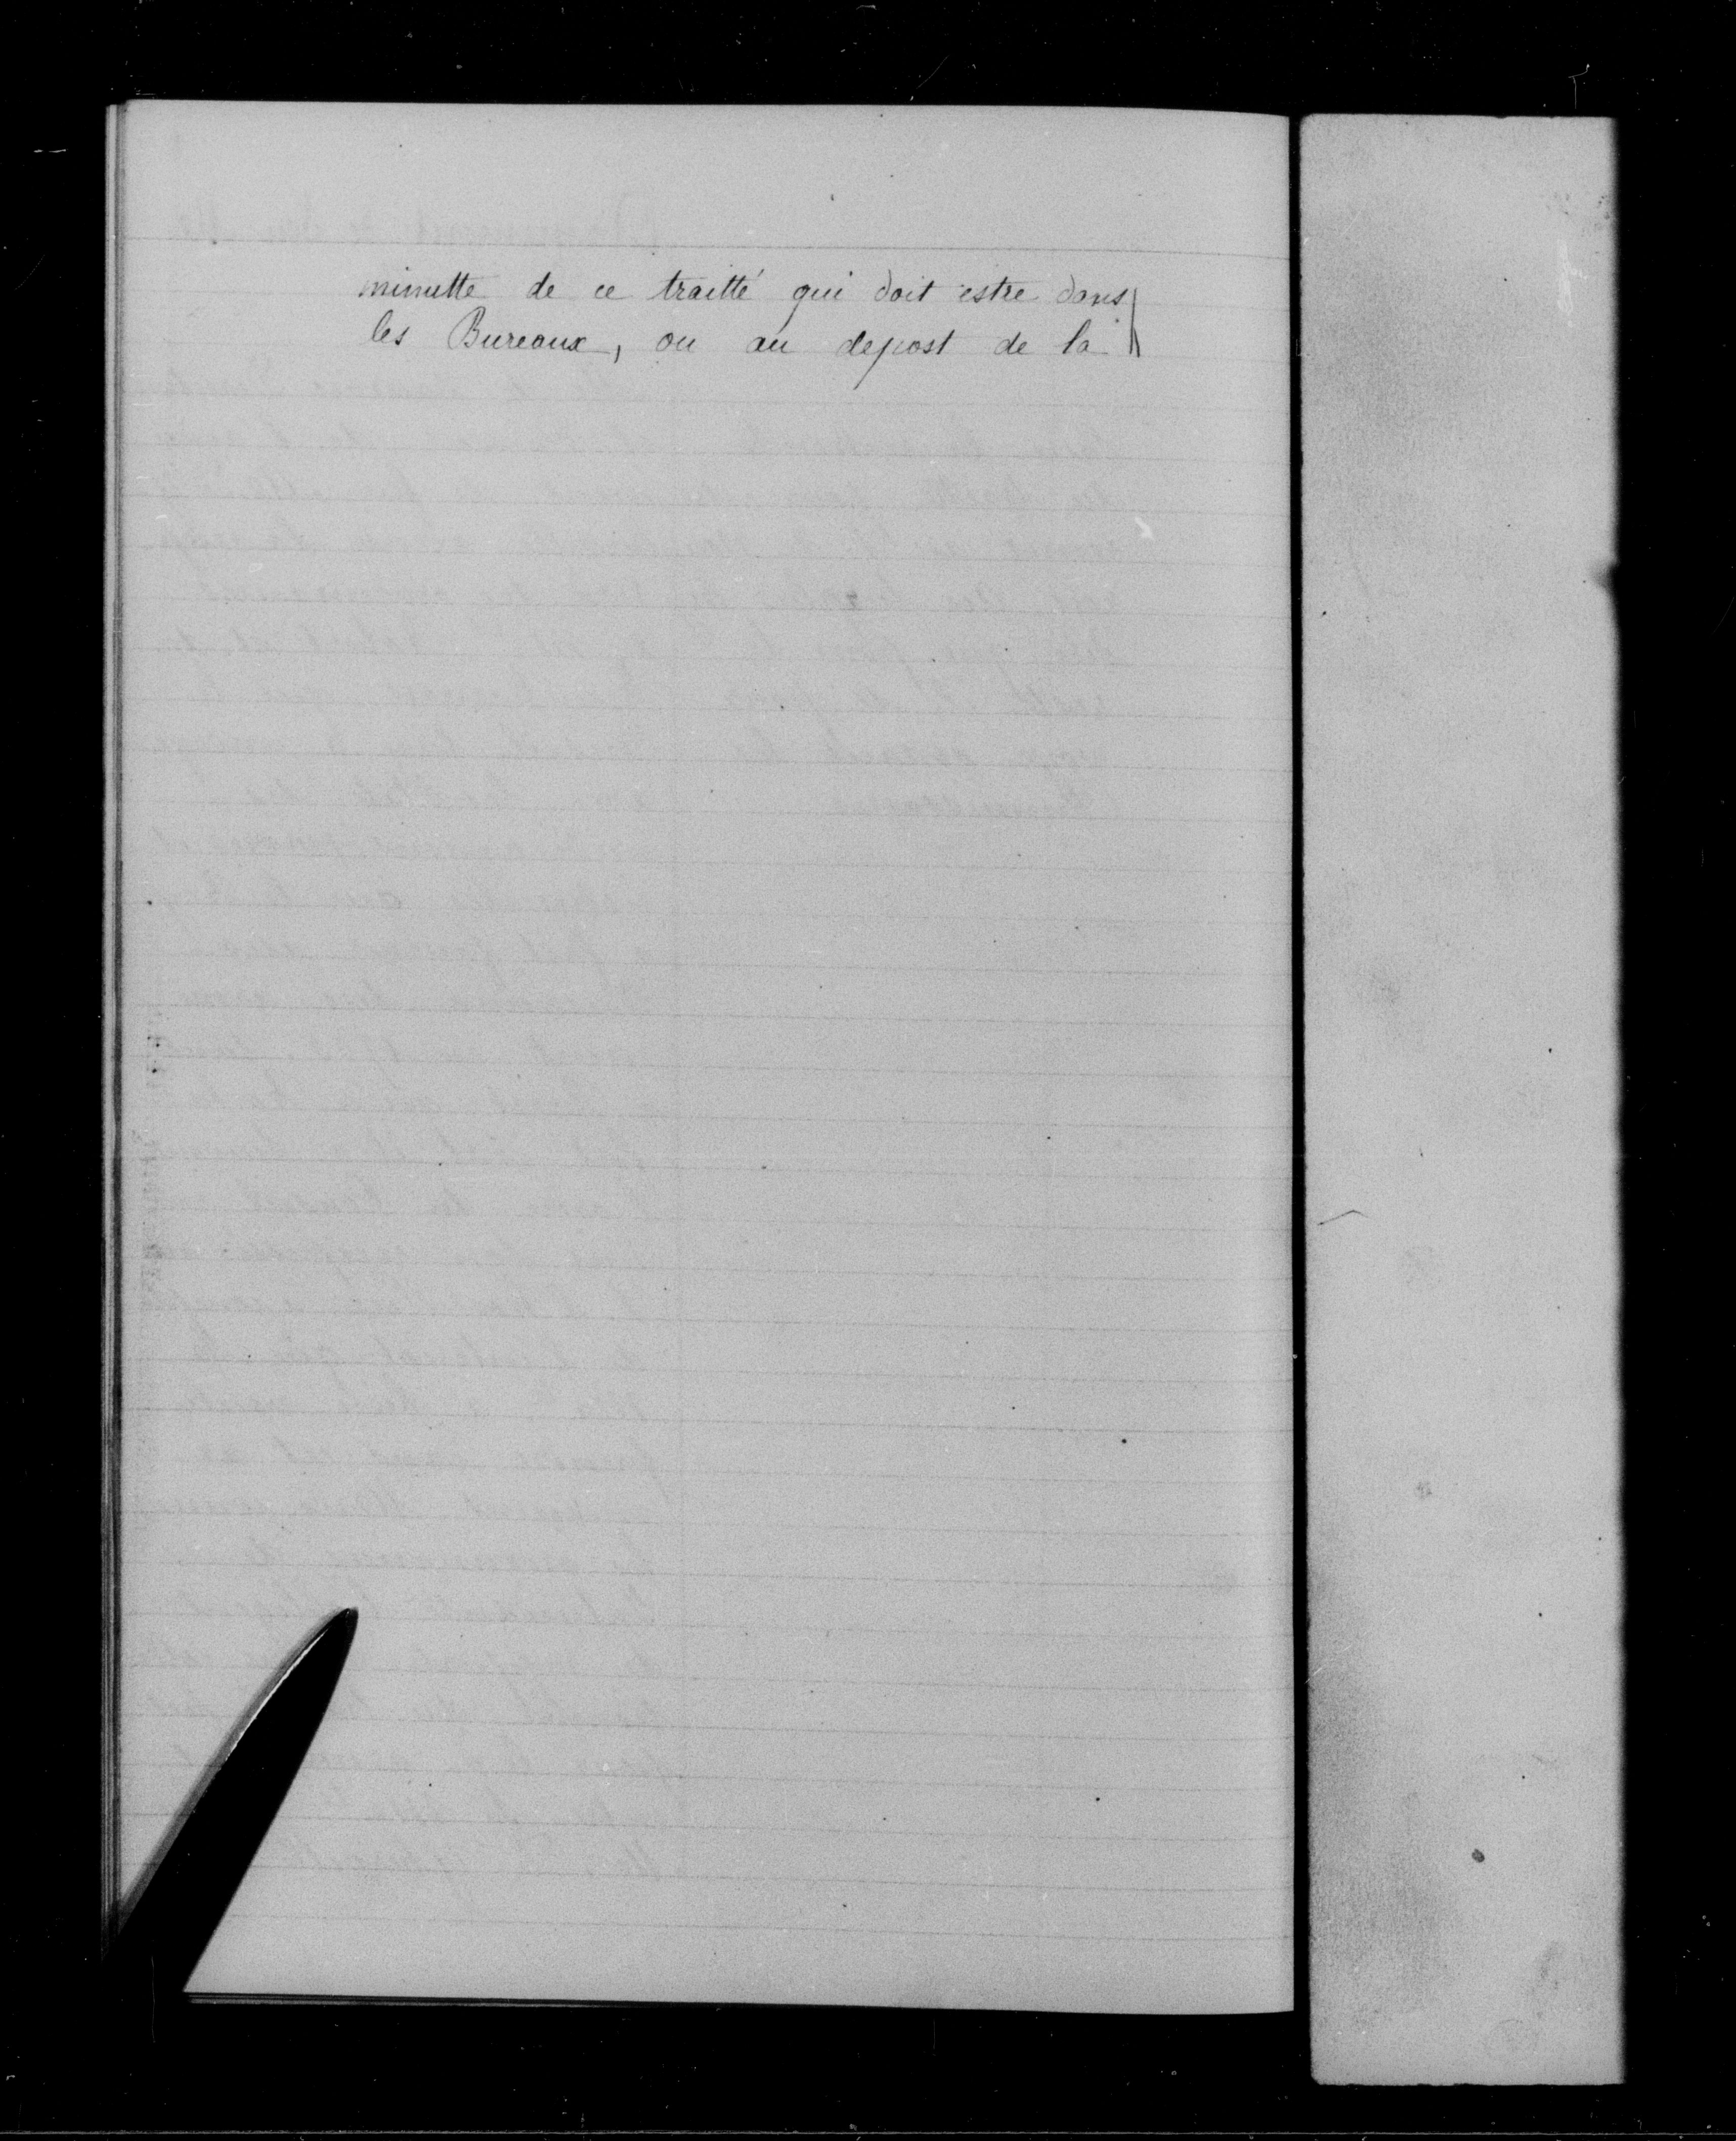 minutte de ce traitté qui doit estre dans
les Bureaux, ou au depost de la